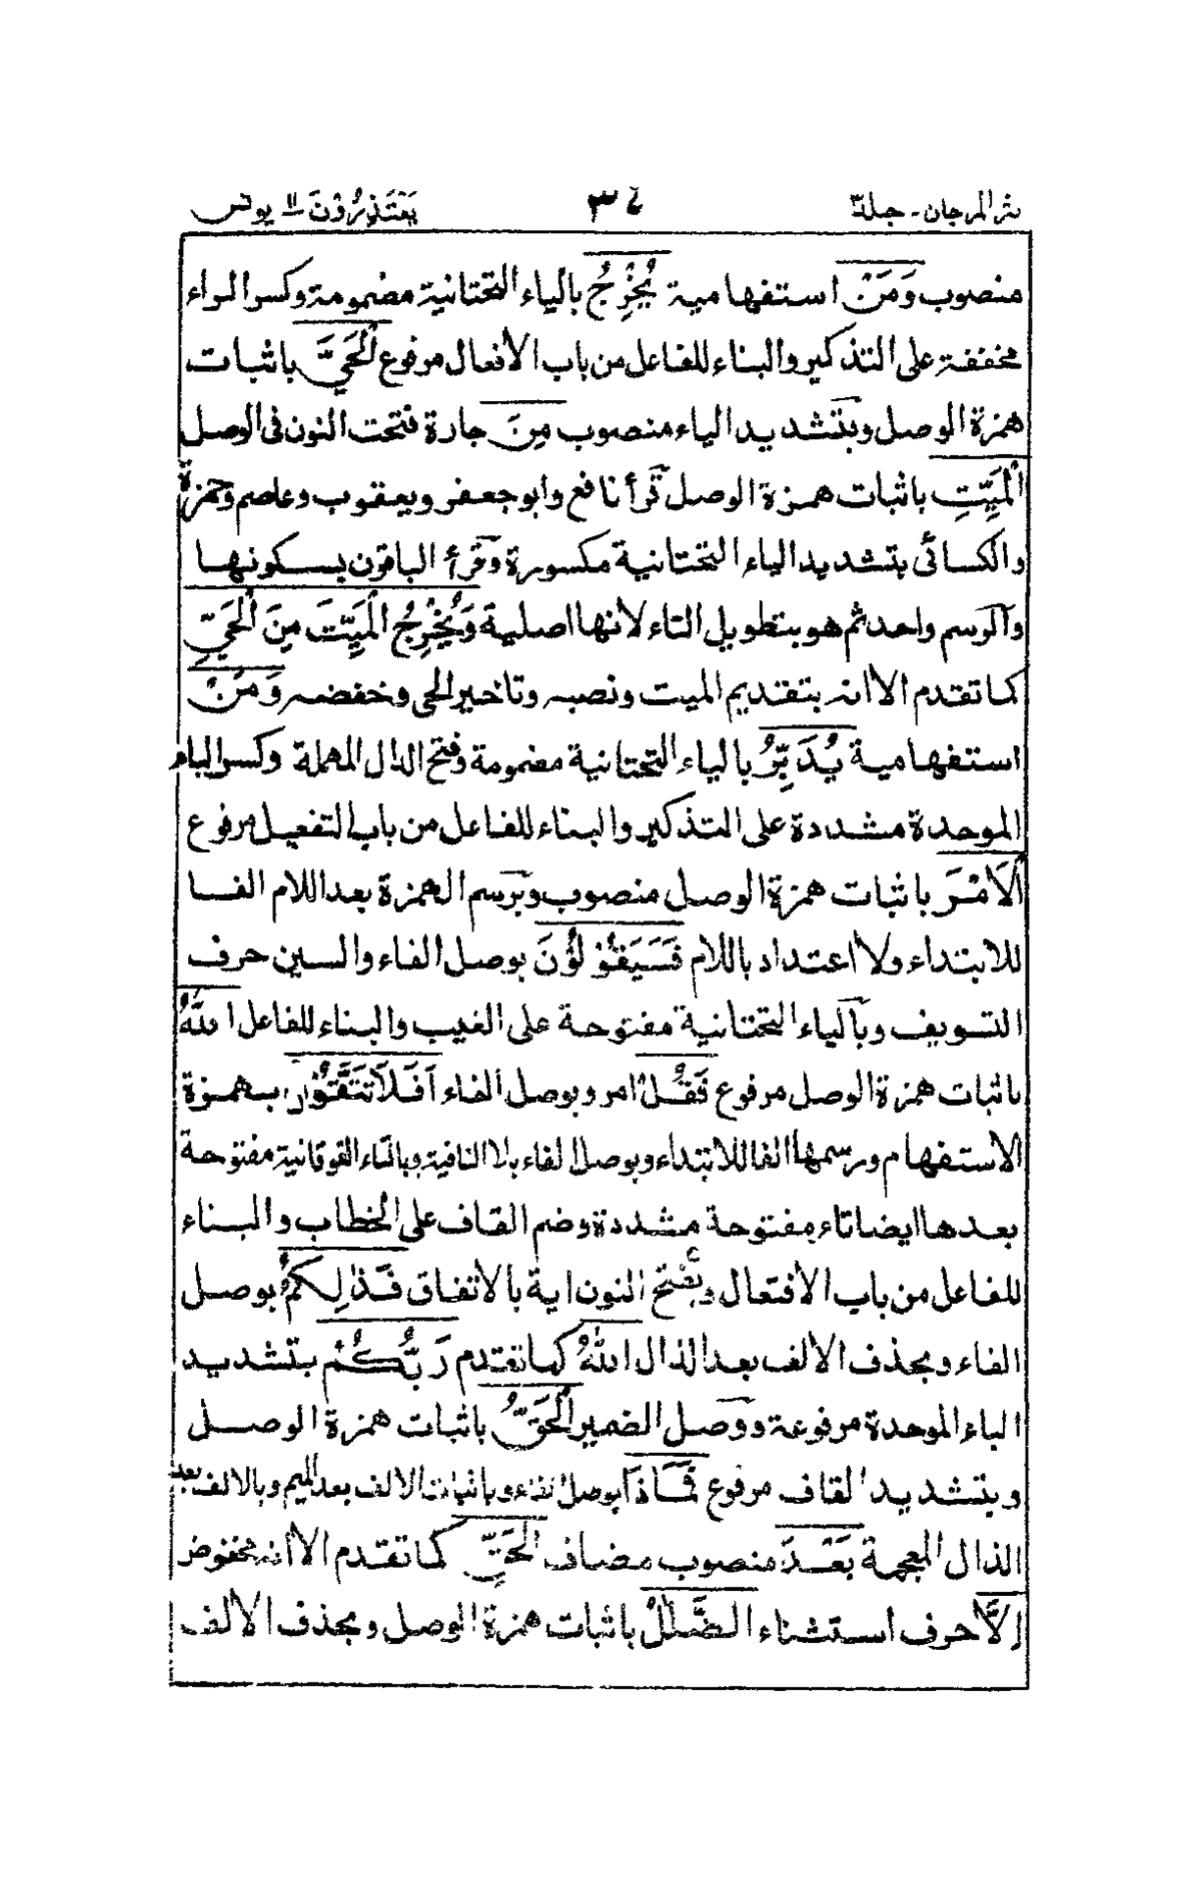 نثر المرجان - جلد ٣ ٣٤ يَعْتَذِرُوْنَ ١١ يونس
منصوب وَمَنْ استفهامية يُخْرِجُ بالياء التحتانية مضمومة وكسر الراء
مخففة على التذكير والبناء للفاعل من باب الافعال مرفوع اَلْحَيَّ باثبات
همزة الوصل وبتشديد الياء منصوب مِنَ جارة فتحت النون فى الوصل
الْمَيِّتِ باثبات همزة الوصل قرأ نافع وابو جعفر ويعقوب وعاصم وحمزة
والكسائى بتشديد الياء التحتانية مكسورة وقرأ الباقون بسكونها
والرسم واحد ثم هو بتطويل التاء لانها اصلية وَيُخْرِجُ الْمَيِّتَ مِنَ الْحَيِّ
كما تقدم الا انه بتقديم الميت ونصبه وتاخير الحى وخفضه وَمَنْ
استفهامية يُدَبِّرُ بالياء التحتانية مضمومة وفتح الدال المهملة وكسر الباء
الموحدة مشددة على التذكير والبناء للفاعل من باب التفعيل مرفوع
اَلْاَمْرَ باثبات همزة الوصل منصوب وبرسم الهمزة بعد اللام الفا
للابتداء ولا اعتداد باللام فَسَيَقُوْلُوْنَ بوصل الفاء والسين حرف
التسويف وبالياء التحتانية مفتوحة على الغيب والبناء للفاعل اللهُ
باثبات همزة الوصل مرفوع فَقُلْ امر وبوصل الفاء اَفَلَا تَتَّقُوْنَ بهمزة
الاستفهام ورسمها الفا للابتداء وبوصل الفاء بلا النافية وبالتاء الفوقانية مفتوحة
بعدها ايضا تاء مفتوحة مشددة وضم القاف على الخطاب والبناء
للفاعل من باب الافتعال وبفتح النون اية بالاتفاق فَذٰلِكُمُ بوصل
الفاء وبحذف الالف بعد الذال اللهُ كما تقدم رَبُّكُمْ بتشديد
الباء الموحدة مرفوعة ووصل الضمير الْحَقُّ باثبات همزة الوصل
وبتشديد القاف مرفوع فَمَاذَا بوصل الفاء وباثبات الالف بعد الميم وبالالف بعد
الذال المعجمة بَعْدَ منصوب مضاف الْحَقِّ كما تقدم الا انه مخفوض
اِلَّا حرف استثناء الضَّلٰلُ باثبات همزة الوصل وبحذف الالف